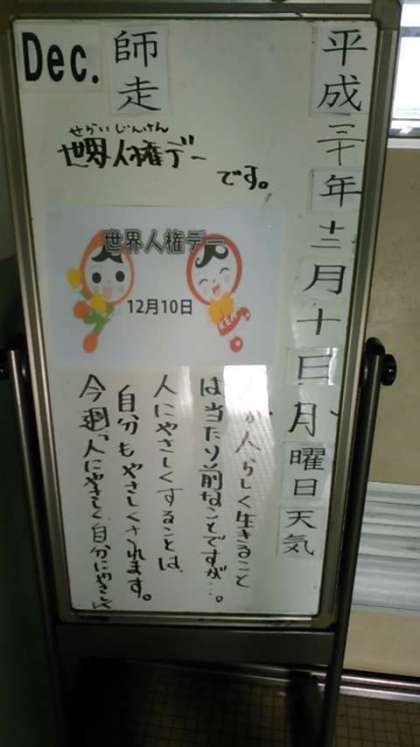 平成三十年十二月十日月曜日天気
Dec.
師走
せかいじんけん
世界人権デー
です。
世界人権デー
12月10日
が人らしく生きること
は当たり前なことですが…。
人にやさしくすることは、
自分もやさしくされます。
今週「人にやさしく自分にやさしく